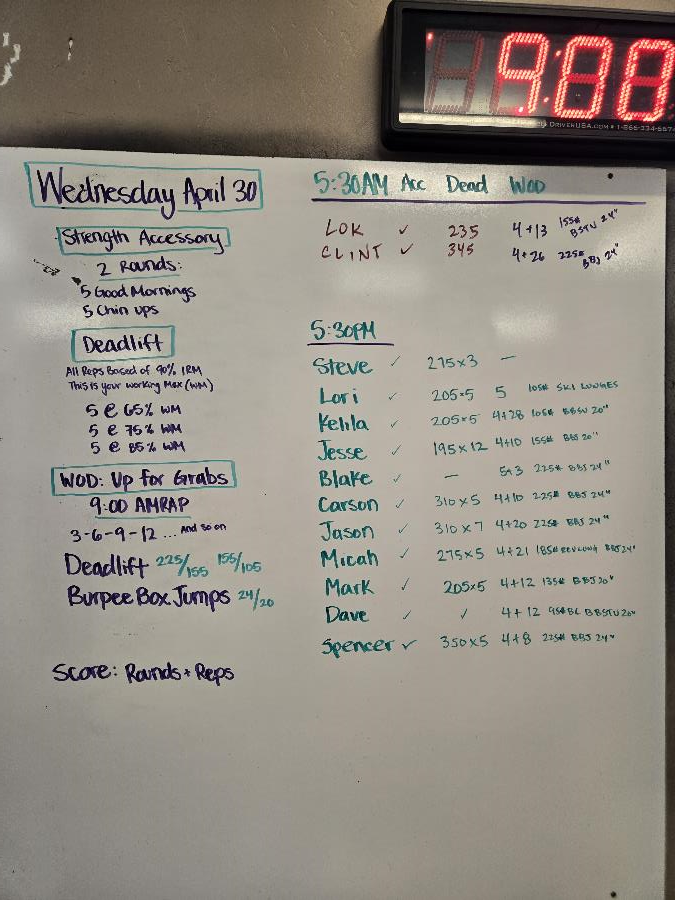 9:00
DriverUSA.com • 1-855-334-6674
Wednesday April 30
Strength Accessory
2 Rounds:
5 Good Mornings
5 Chin ups
Deadlift
All Reps Based of 90% 1RM
This is your working Max (WM)
5 @ 65% WM
5 @ 75% WM
5 @ 85% WM
WOD: Up for Grabs
9:00 AMRAP
3-6-9-12 ... And so on
Deadlift 225/155 155/105
Burpee Box Jumps 24/20
Score: Rounds + Reps
5:30AM Acc Dead WOD
LOK ✓ 235 4+13 155# BSTU 24"
CLINT ✓ 345 4+26 225# BBJ 24"
5:30PM
Steve ✓ 275x3 —
Lori ✓ 205x5 5 105# SKI LUNGES
Kehla ✓ 205x5 4+28 105# BBSU 20"
Jesse ✓ 195x12 4+10 155# BBJ 20"
Blake ✓ — 5+3 225# BBJ 24"
Carson ✓ 310x5 4+10 225# BBJ 24"
Jason ✓ 310x7 4+20 225# BBJ 24"
Micah ✓ 275x5 4+21 185# REV LUNG BBJ 24"
Mark ✓ 205x5 4+12 135# BBJ 20"
Dave ✓ ✓ 4+12 95# BBSTU 20"
Spencer ✓ 350x5 4+8 225# BBJ 24"